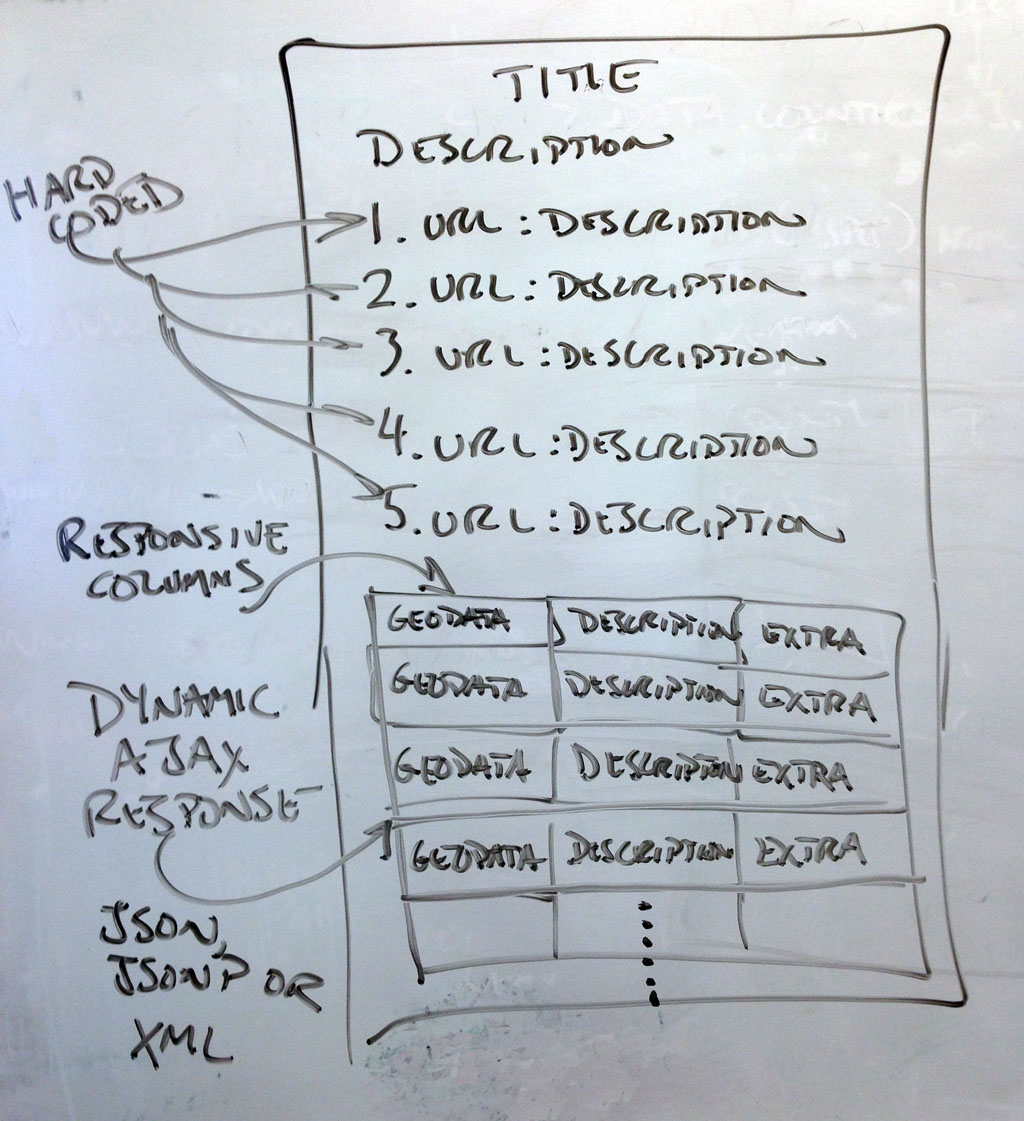 TITLE
DESCRIPTION
HARD
CODED
1. URL : DESCRIPTION
2. URL : DESCRIPTION
3. URL : DESCRIPTION
4. URL : DESCRIPTION
5. URL : DESCRIPTION
RESPONSIVE
COLUMNS
GEODATA DESCRIPTION EXTRA
GEODATA DESCRIPTION EXTRA
GEODATA DESCRIPTION EXTRA
GEODATA DESCRIPTION EXTRA
DYNAMIC
AJAX
RESPONSE
JSON,
JSONP OR
XML